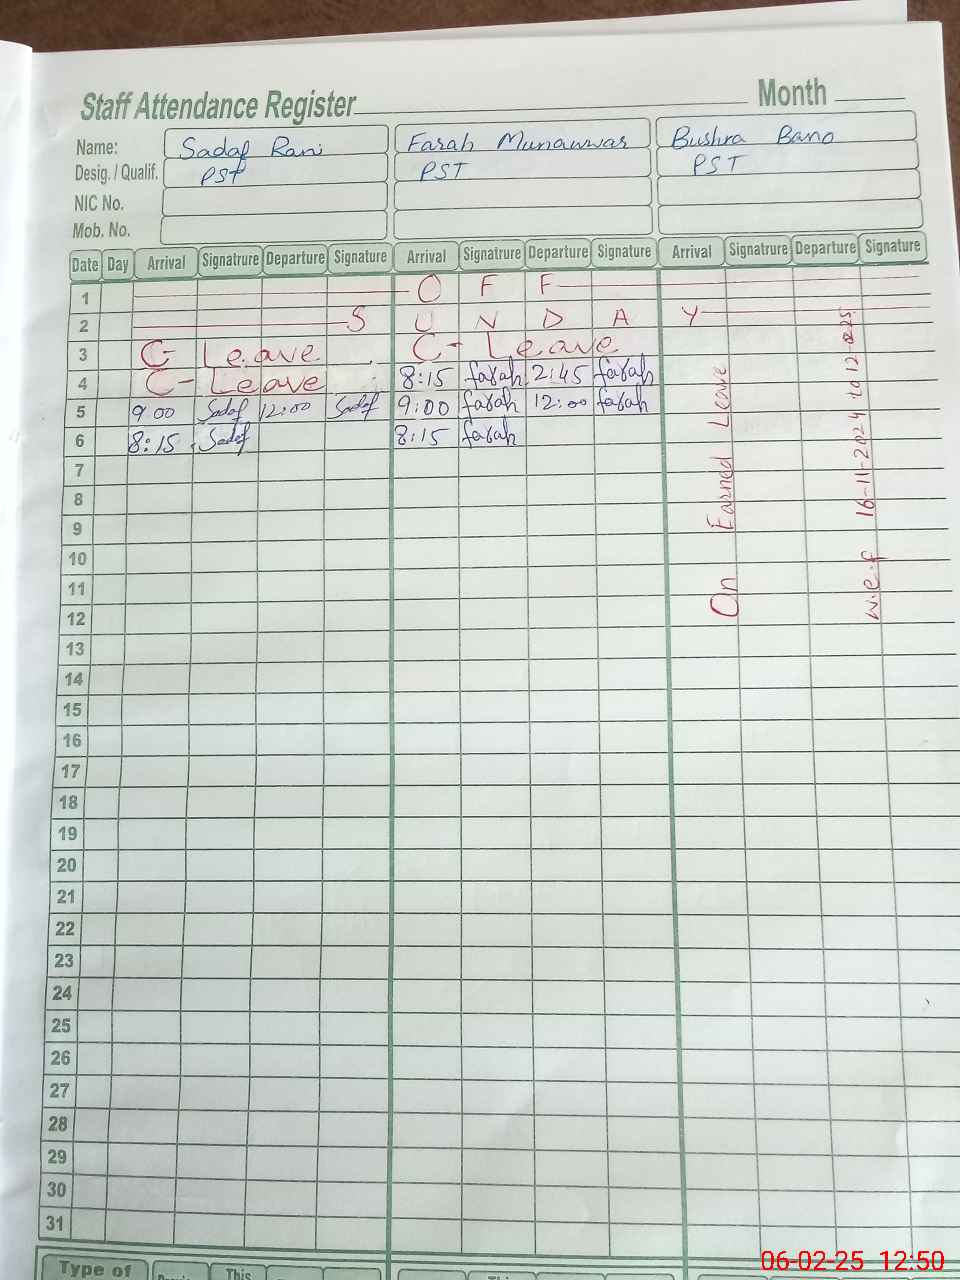 Staff Attendance Register Month
Name: Sadaf Rani Farah Munawwar Bushra Bano
Desig. / Qualif. PST PST PST
NIC No.
Mob. No.
Date Day Arrival Signatrure Departure Signature Arrival Signatrure Departure Signature Arrival Signatrure Departure Signature
1 O F F
2 S U N D A Y
3 C- Leave C- Leave
4 C- Leave 8:15 farah 2:45 farah
5 9:00 Sadaf 12:00 Sadaf 9:00 farah 12:00 farah
6 8:15 Sadaf 8:15 farah
7
8
9
10
11
12
13
14
15
16
17
18
19
20
21
22
23
24
25
26
27
28
29
30
31
On Earned Leave
w.e.f 16-11-2024 to 12-2-25
Type of This
06-02-25 12:50